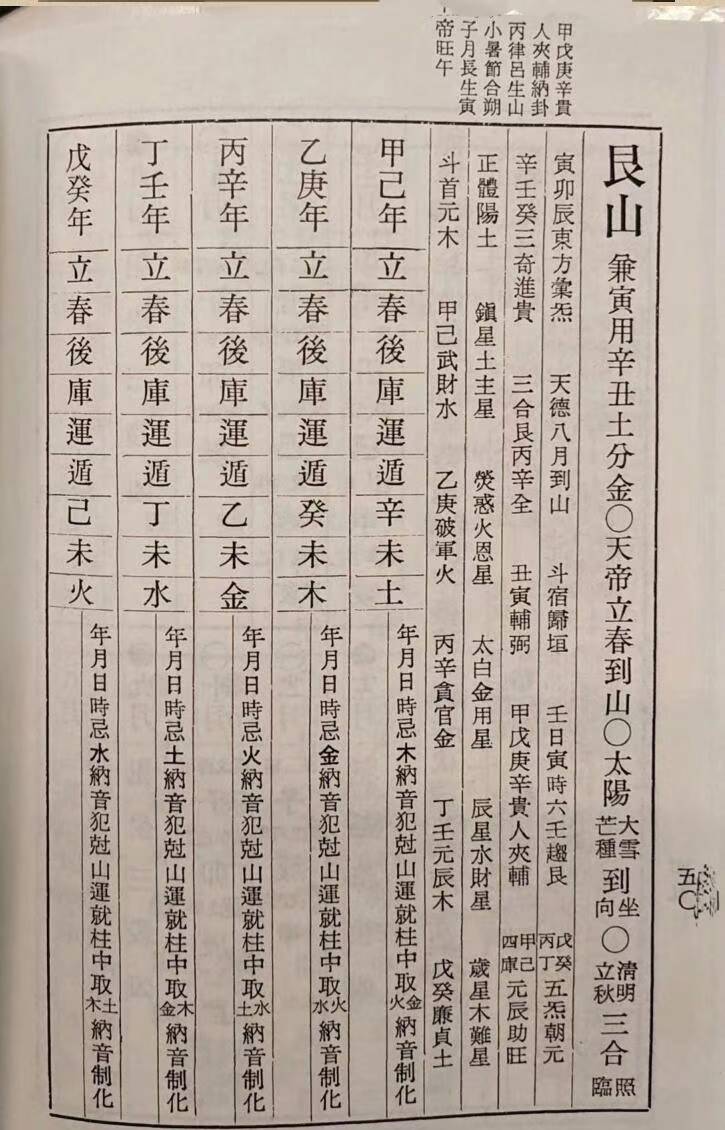 甲戊庚辛貴
人夾輔納卦
丙律呂生山
小暑節合朔
子月長生寅
帝旺午
艮山 兼寅用辛丑土分金○天帝立春到山○太陽大雪芒種到坐向○清明立秋三合照臨
寅卯辰東方彙炁 天德八月到山 斗宿歸垣 壬日寅時六壬趨艮 戊癸丙丁五炁朝元
辛壬癸三奇進貴 三合艮丙辛全 丑寅輔弼 甲戊庚辛貴人夾輔 甲己四庫元辰助旺
正體陽土 鎭星土主星 熒惑火恩星 太白金用星 辰星水財星 歲星木難星
斗首元木 甲己武財水 乙庚破軍火 丙辛貪官金 丁壬元辰木 戊癸廉貞土
甲己年立春後庫運遁辛未土 年月日時忌木納音犯尅山運就柱中取金火納音制化
乙庚年立春後庫運遁癸未木 年月日時忌金納音犯尅山運就柱中取火水納音制化
丙辛年立春後庫運遁乙未金 年月日時忌火納音犯尅山運就柱中取水土納音制化
丁壬年立春後庫運遁丁未水 年月日時忌土納音犯尅山運就柱中取木金納音制化
戊癸年立春後庫運遁己未火 年月日時忌水納音犯尅山運就柱中取土木納音制化
五○